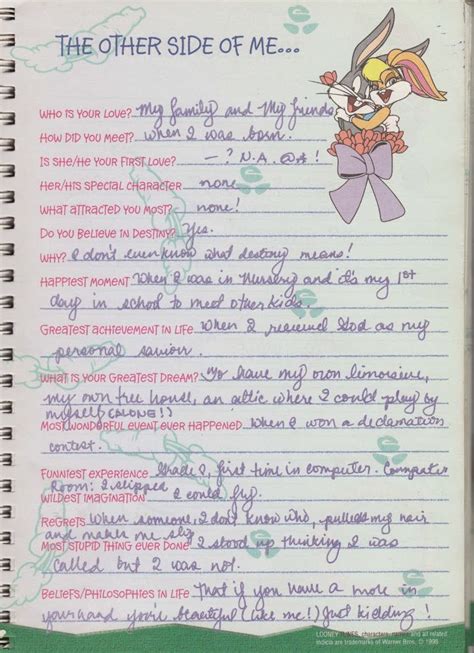 THE OTHER SIDE OF ME...
WHO IS YOUR LOVE? My family and My friends
HOW DID YOU MEET? When I was born.
IS SHE/HE YOUR FIRST LOVE? — ? N.A. !
HER/HIS SPECIAL CHARACTER none
WHAT ATTRACTED YOU MOST? none!
DO YOU BELIEVE IN DESTINY? Yes.
WHY? I don't even know what destiny means!
HAPPIEST MOMENT When I was in Nursery and it's my 1st
day in school to meet other kids.
GREATEST ACHIEVEMENT IN LIFE When I received God as my
personal savior.
WHAT IS YOUR GREATEST DREAM? To have my own limousine,
my own tree house, an attic where I could play by
myself (ALONE!!)
MOST WONDERFUL EVENT EVER HAPPENED When I won a declamation
contest.
FUNNIEST EXPERIENCE Grade 2, first time in computer. Computer
Room: I slipped
WILDEST IMAGINATION I could fly.
REGRETS When someone, I don't know who, pulled my hair
and makes me
MOST STUPID THING EVER DONE I stood up thinking I was
called but I was not.
BELIEFS/PHILOSOPHIES IN LIFE That if you have a mole in
your hand you're beautiful (like me!) Just kidding!
LOONEY TUNES, characters, names and all related
indicia are trademarks of Warner Bros. © 1998